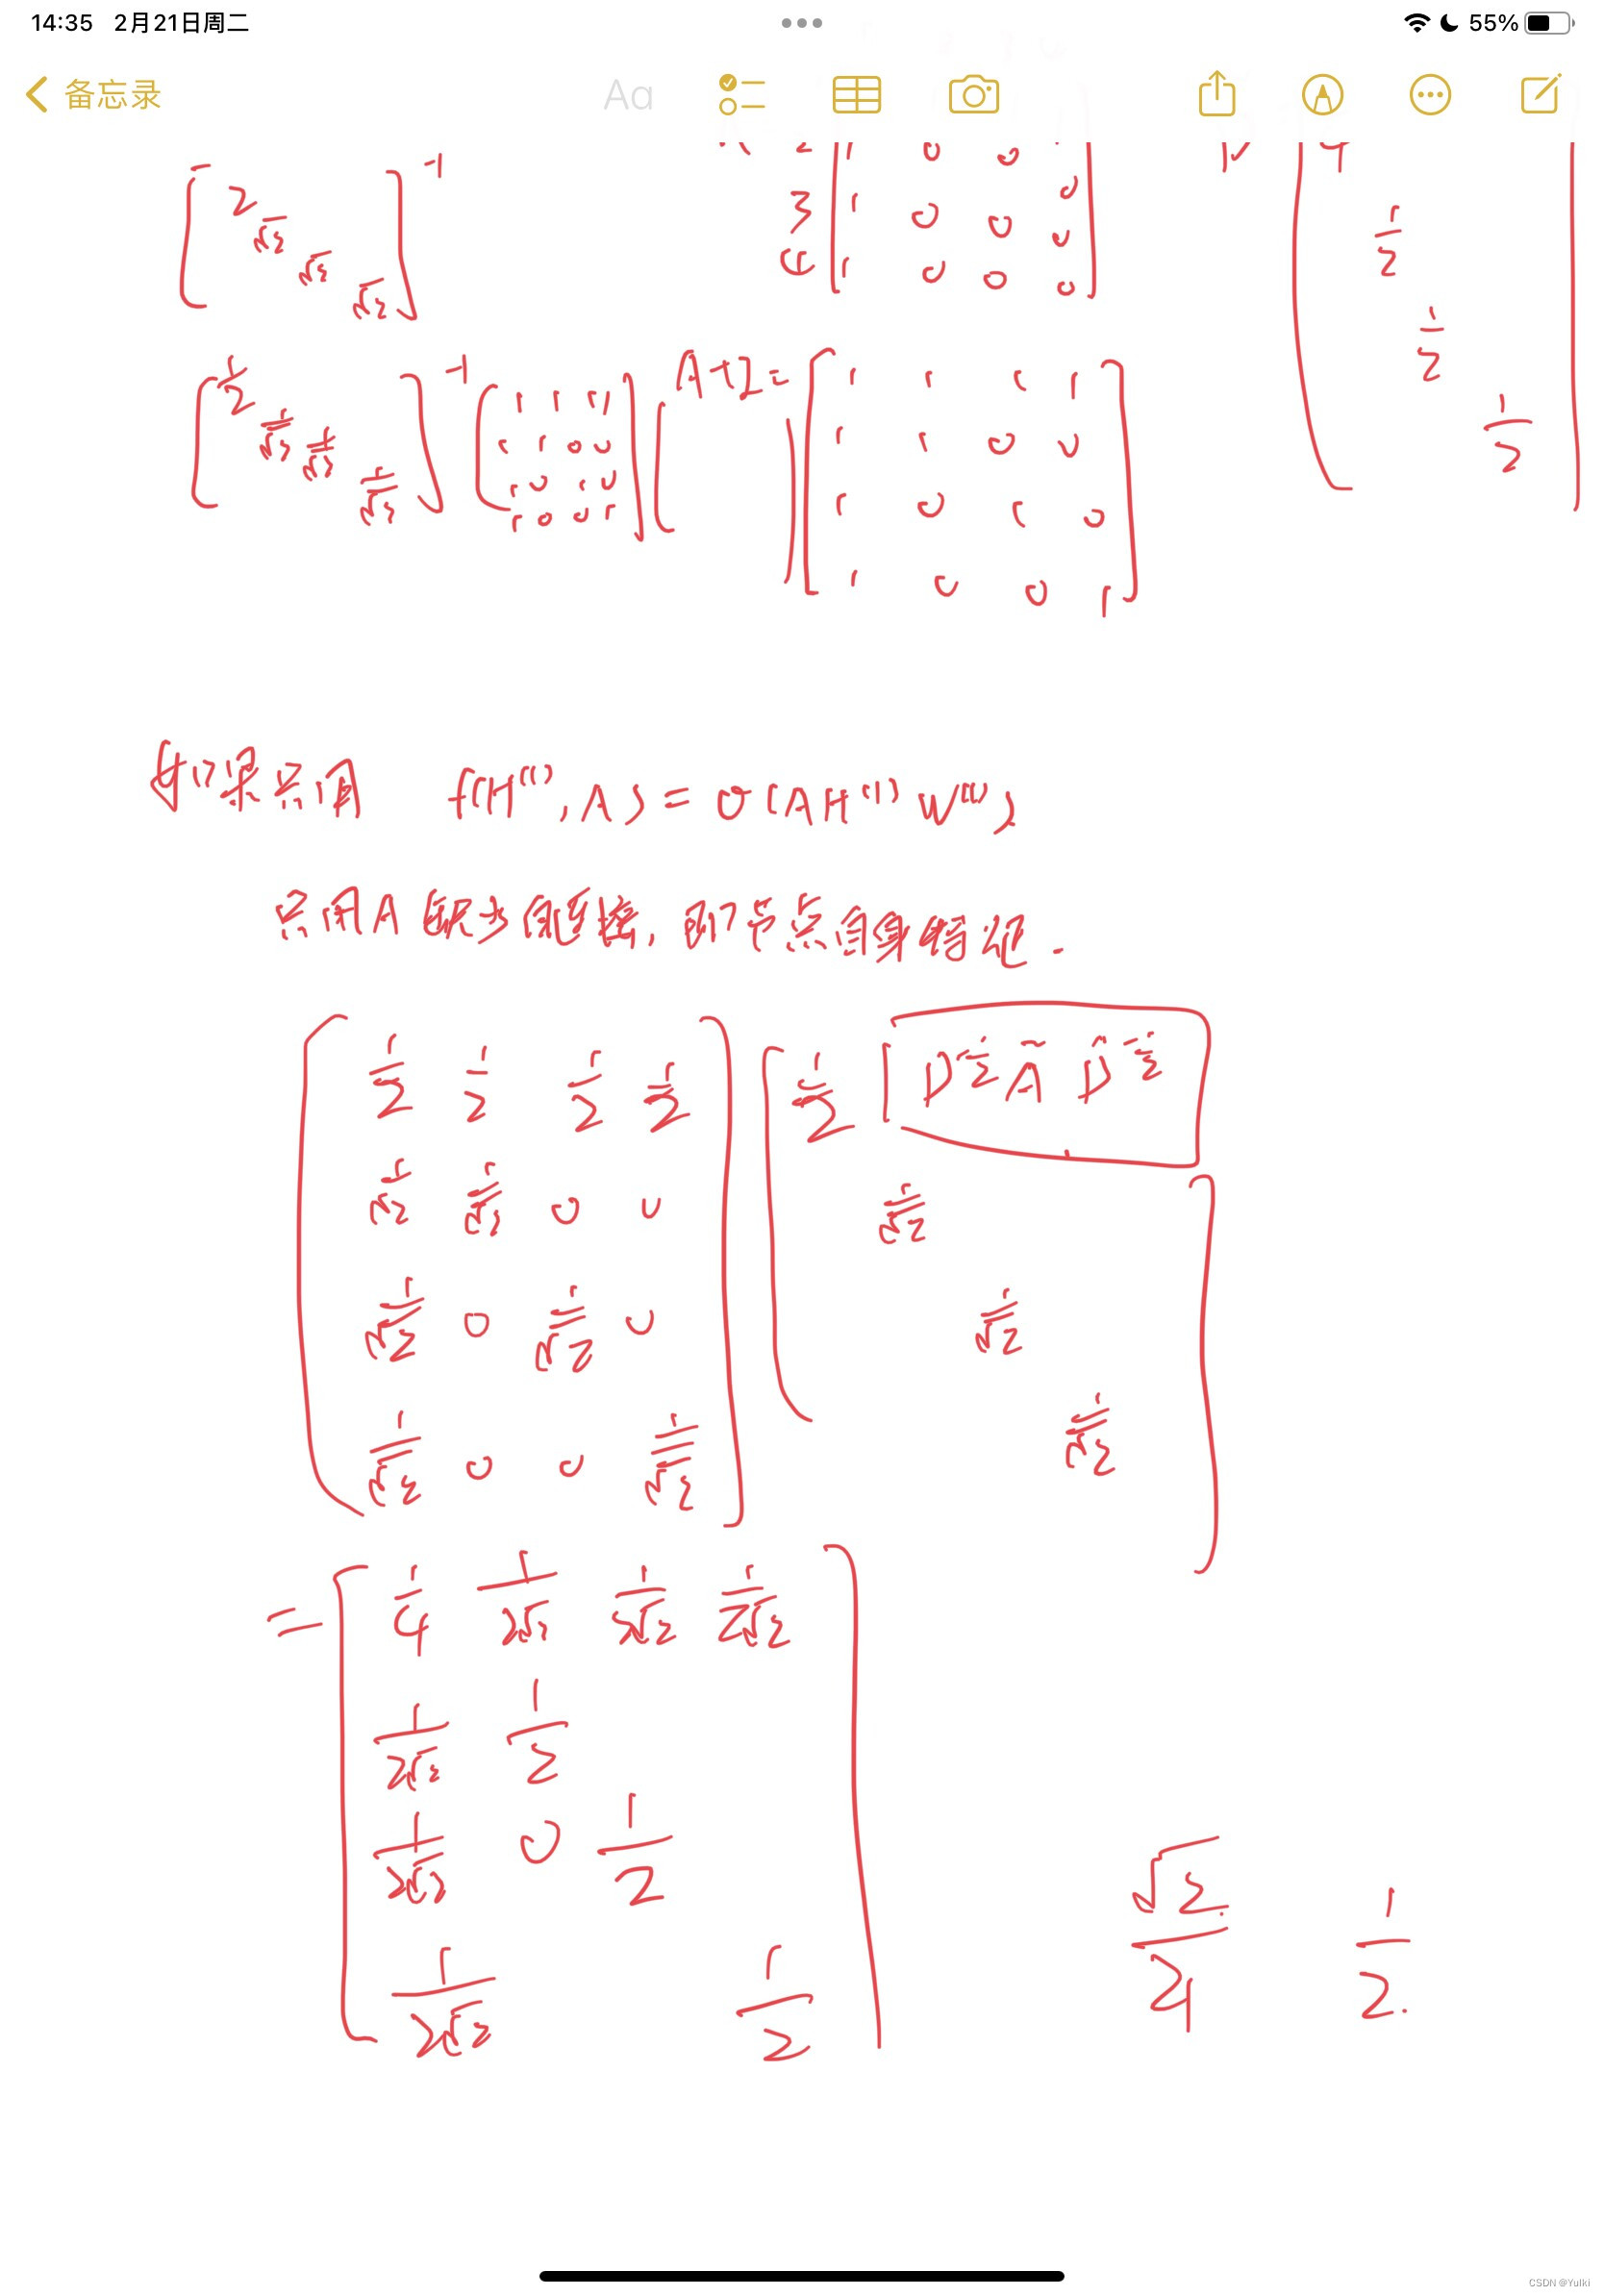 14:35 2月21日周二 55%
备忘录 Aa
[2 √2 √2 √2]⁻¹
2 1 0 0
3 1 0 0 0
4 1 0 0 0
1/2
1/2
1/2
[1/2 1/√2 1/√2 1/√2]⁻¹
1 1 1 1
1 1 0 0
1 0 1 0
1 0 0 1
A+I=
1 1 1 1
1 1 0 0
1 0 1 0
1 0 0 1
如果只用 f(H⁽ˡ⁾, A) = σ(AH⁽ˡ⁾W⁽ˡ⁾)
只用A缺少自连接, 即节点自身特征.
1/2 1/2 1/2 1/2
1/√2 1/√2 0 0
1/√2 0 1/√2 0
1/√2 0 0 1/√2
1/2
D^-1/2 Ã D̂^-1/2
1/√2
1/√2
1/√2
=
1/4 1/2√2 1/2√2 1/2√2
1/2√2 1/2
1/2√2 0 1/2
1/2√2 1/2
√2/4 1/2
CSDN @Yulki